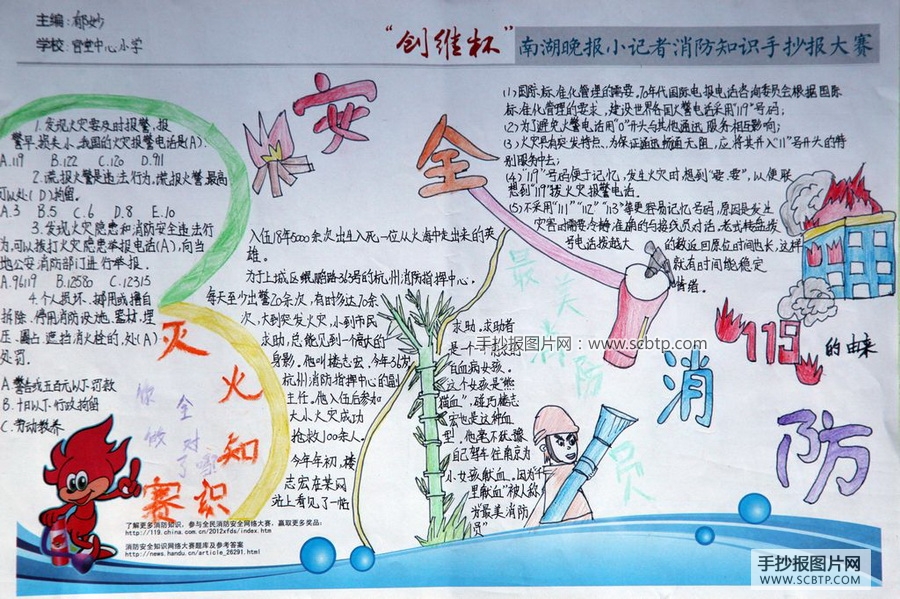 主编:郁妙
学校:宫堂中心小学
"创维杯"南湖晚报小记者消防知识手抄报大赛
安全消防
1.发现火灾要及时报警,报
警早,损失小,我国的火灾报警电话是(A).
A.119 B.122 C.120 D.911
2.谎报火警是违法行为,谎报火警最高
可以处(D)拘留.
A.3 B.5 C.6 D.8 E.10
3.发现火灾隐患和消防安全违法行
为,可以拨打火灾隐患举报电话(A),向当
地公安消防部门进行举报.
A.96119 B.12580 C.12315
4.个人损坏、挪用或擅自
拆除、停用消防设施、器材,埋
压、圈占、遮挡消火栓的,处(A)
处罚.
A 警告或五百元以下罚款
B.十日以下行政拘留
C.劳动教养
灭火知识赛
你做全对了
了解更多消防知识,参与全民消防安全网络大赛,赢取更多奖品:
http://119.china.com.cn/2012xfds/index.htm
消防安全知识网络大赛题库及参考答案
http://news.handu.cn/article_26291.html
入伍18年5000余次出生入死一位从火海中走出来的英
雄.
为于上城区银鼎路363号的杭州消防指挥中心,
每天至少出警20余次,有时多达70余
次,大到突发火灾,小到市民
求助,总能见到一个高大的
身影,他叫楼志宏,今年36岁
杭州消防指挥中心的副
主任。他入伍后参加
大小火灾成功
抢救100余人。
今年年初,楼
志宏在某网
站上看见了一帖
求助,求助者
是一个
白血病女孩。
这个女孩是"熊
猫血",碰巧楼志
宏也是这种血
型,他毫不犹豫
自己驾车往南京为
小女孩献血。因为千
里献血"被人称
为最美消防
员"
最美消防员
(1)国际标准化管理的需要。70年代国际电报电话咨询委员会根据国际
标准化管理的要求,建议世界各国火警电话采用"119"号码;
(2)为了避免火警电话用"0"开头与其他通讯服务相互影响;
(3)火灾具有突发特点,为保证通讯畅通无阻,应将其并入"11"号开头的特
别服务中去;
(4)"119"号码便于记忆,发生火灾时想到"要要",从便联
想到"119"拨火灾报警电话.
(5)不采用"111""112""113"等更容易记忆号码,原因是发生
灾害时需要冷静准确的与接火员对话。老式转盘拨
号电话拨越大的数返回原位时间也长,这样
就有时间能稳定
情绪。
119的由来
手抄报图片网:www.scbtp.com
手抄报图片网
WWW.SCBTP.COM